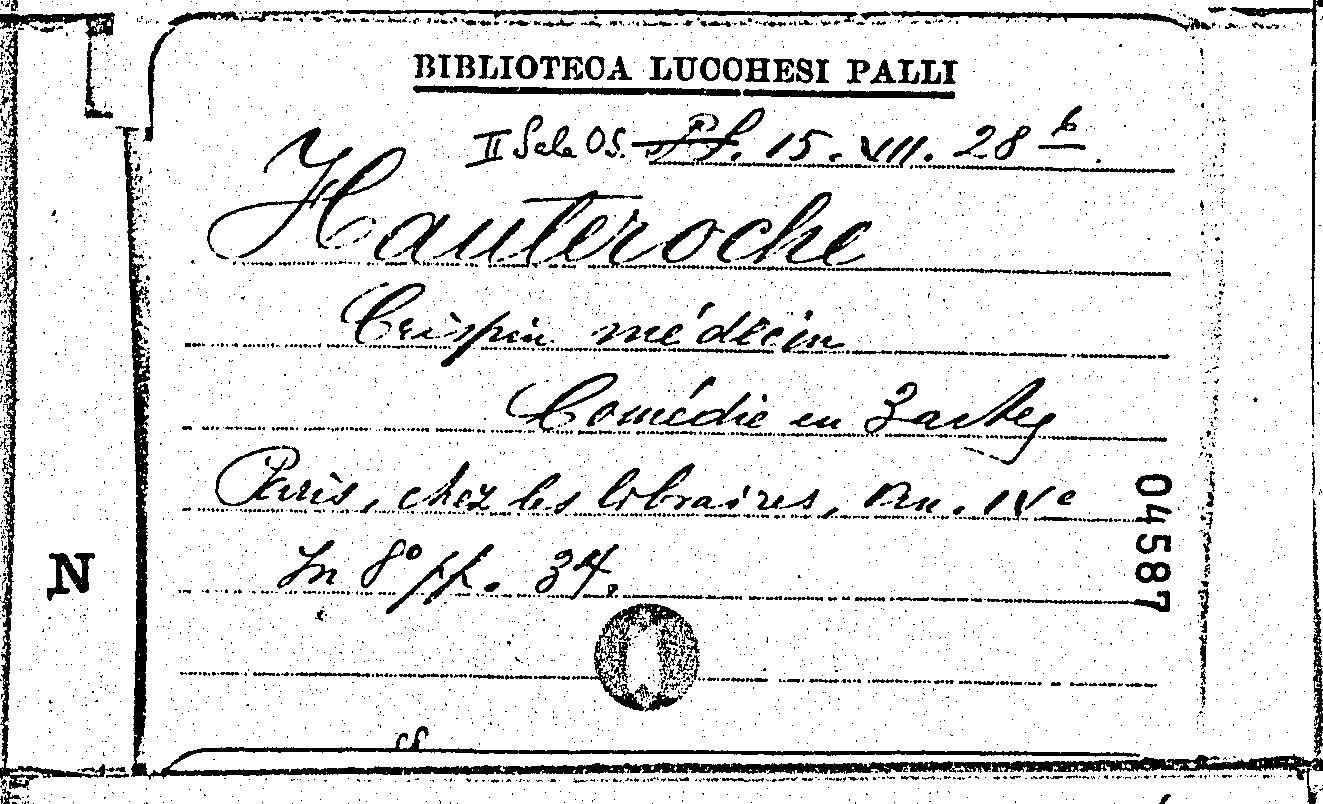 BIBLIOTECA LUCCHESI PALLI
II Sala OS. Pf. 15. VII. 28 b
Hauteroche
Crispin médecin
Comédie en 3 actes
Paris, chez les libraires, An. IVe
In 8° pp. 34.
04587
N